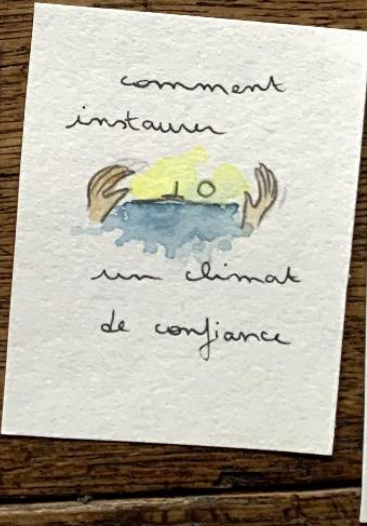 comment
instaurer
un climat
de confiance